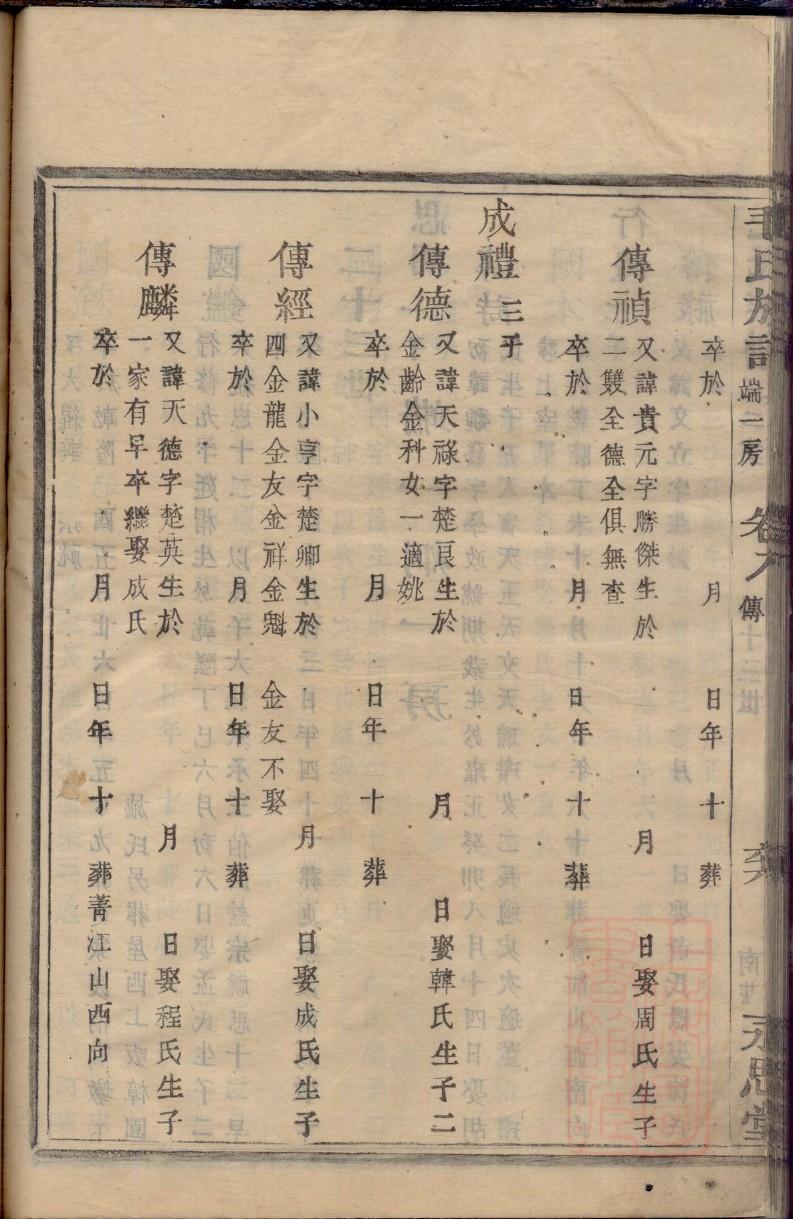 毛氏族譜 端一房 卷九 傳 永思堂
卒於 月 日年 十 葬
傳禎 又諱貴元字勝傑生於 月 日娶周氏生子
二雙全德全俱無查
卒於 月 日年 十 葬
成禮 三子
傳德 又諱天祿字楚良生於 月 日娶韓氏生子二
金齡金科女一適姚
卒於 月 日年 十 葬
傳經 又諱小享字楚卿生於 月 日娶成氏生子
四金龍金友金祥金魁 金友不娶
卒於 月 日年 十 葬
傳麟 又諱天德字楚英生於 月 日娶程氏生子
一家有早卒繼娶成氏
卒於 月 日年 十 葬菁江山西向